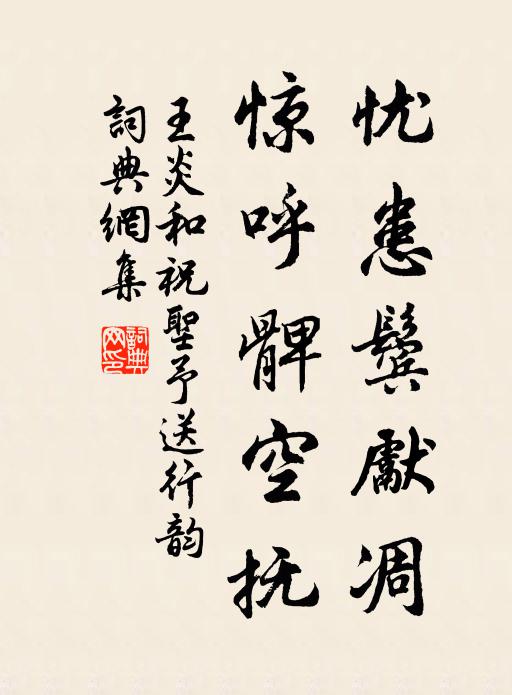 忧患鬓獻凋
惊呼髀空抚
王炎和祝聖予送行韵
詞典網集
詞典網印